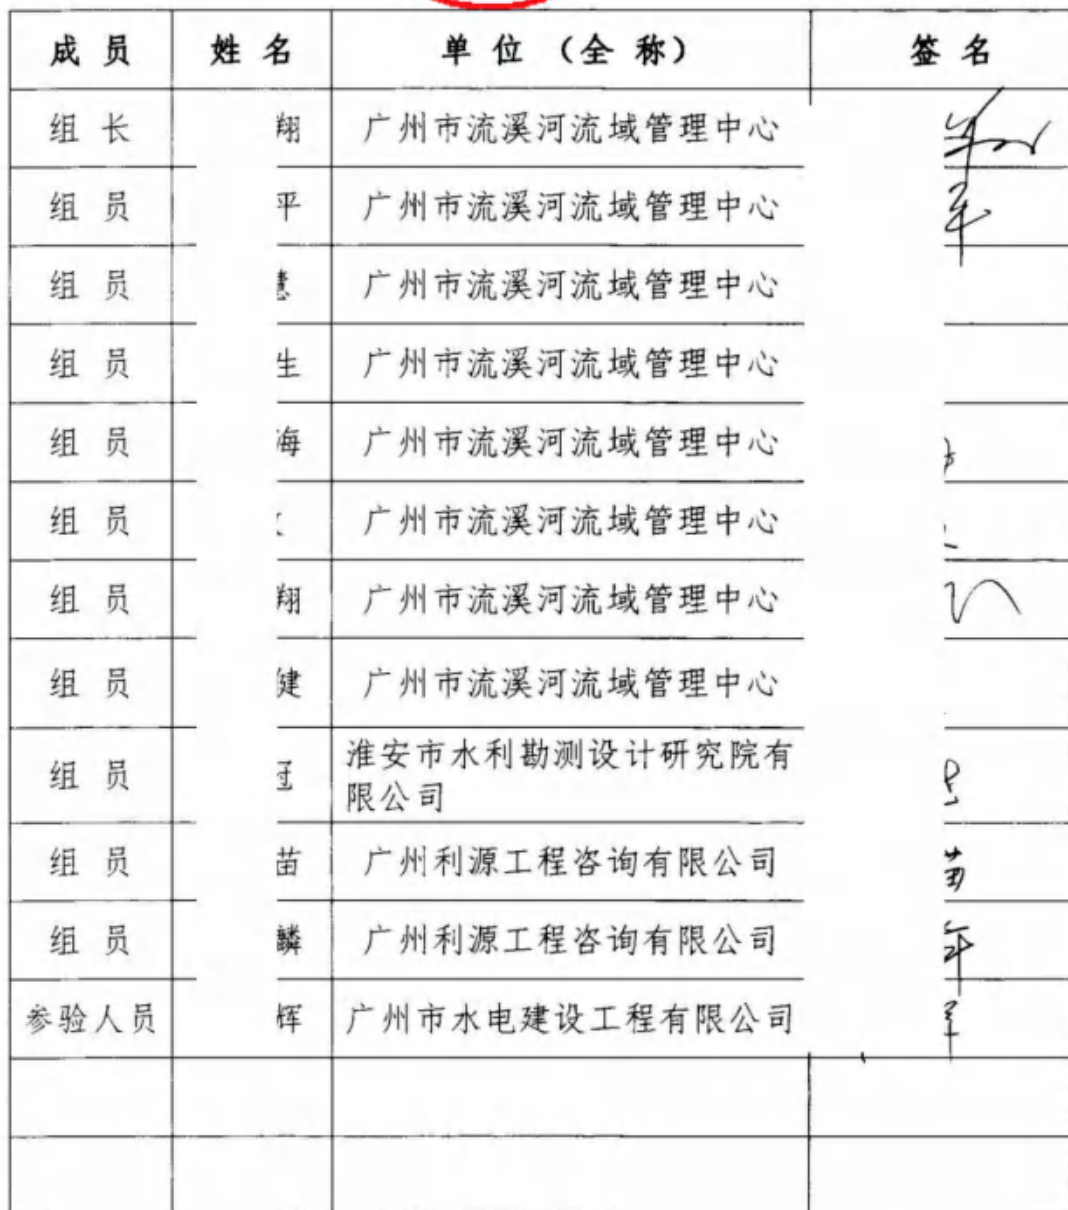 成员 姓名 单位（全称） 签名
组长 翔 广州市流溪河流域管理中心
组员 平 广州市流溪河流域管理中心
组员 慧 广州市流溪河流域管理中心
组员 生 广州市流溪河流域管理中心
组员 海 广州市流溪河流域管理中心
组员 广州市流溪河流域管理中心
组员 翔 广州市流溪河流域管理中心
组员 健 广州市流溪河流域管理中心
组员 冠 淮安市水利勘测设计研究院有
限公司
组员 苗 广州利源工程咨询有限公司 苗
组员 麟 广州利源工程咨询有限公司
参验人员 辉 广州市水电建设工程有限公司